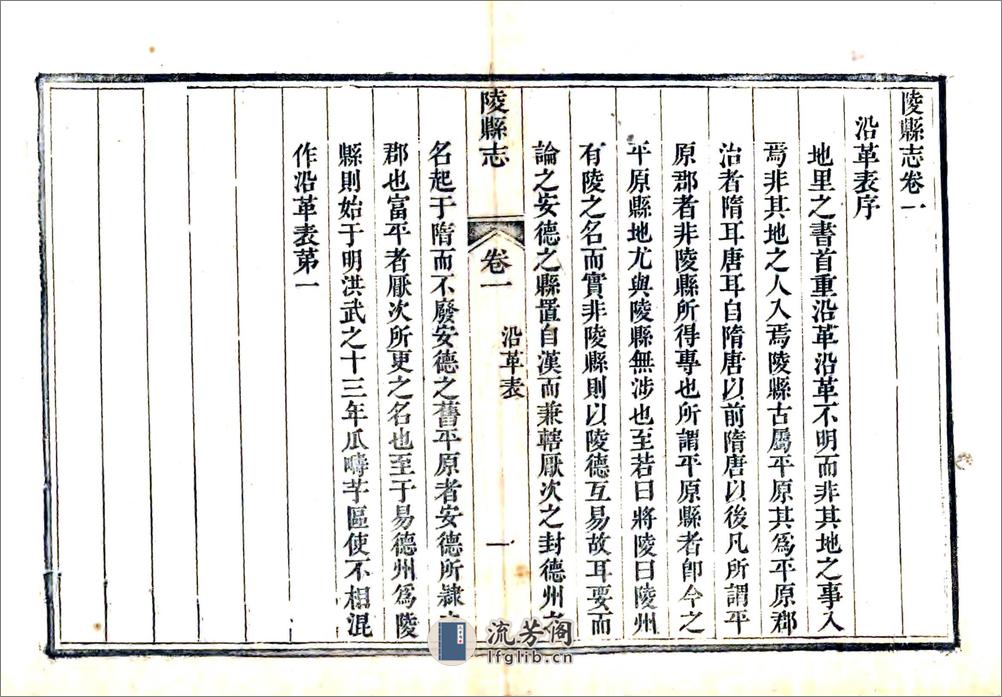 陵縣志卷一
沿革表序
地里之書首重沿革沿革不明而非其地之事入
焉非其地之人入焉陵縣古屬平原其爲平原郡
治者隋耳唐耳自隋唐以前隋唐以後凡所謂平
原郡者非陵縣所得專也所謂平原縣者卽今之
平原縣地尤與陵縣無涉也至若曰將陵曰陵州
有陵之名而實非陵縣則以陵德互易故耳要而
論之安德之縣置自漢而兼轄厭次之封德州之
陵縣志
卷一
沿革表
一
名起于隋而不廢安德之舊平原者安德所隸之
郡也富平者厭次所更之名也至于易德州爲陵
縣則始于明洪武之十三年瓜疇芋區使不相混
作沿革表第一
流芳阁
lfglib.cn